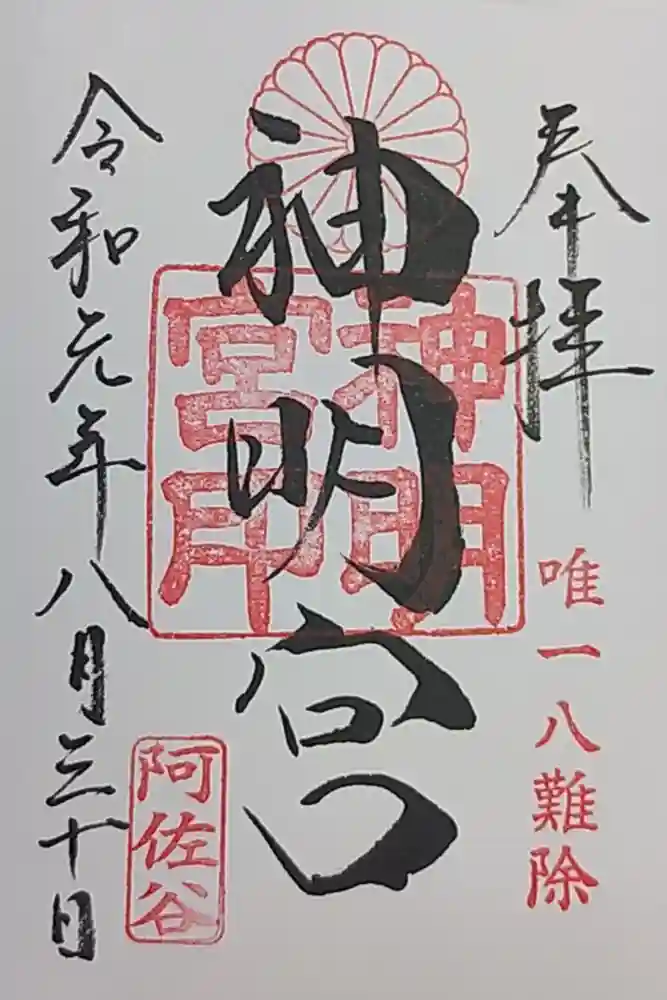 奉拝
唯一八難除
神明宮
神明
宮印
令和元年八月三十日
阿佐谷